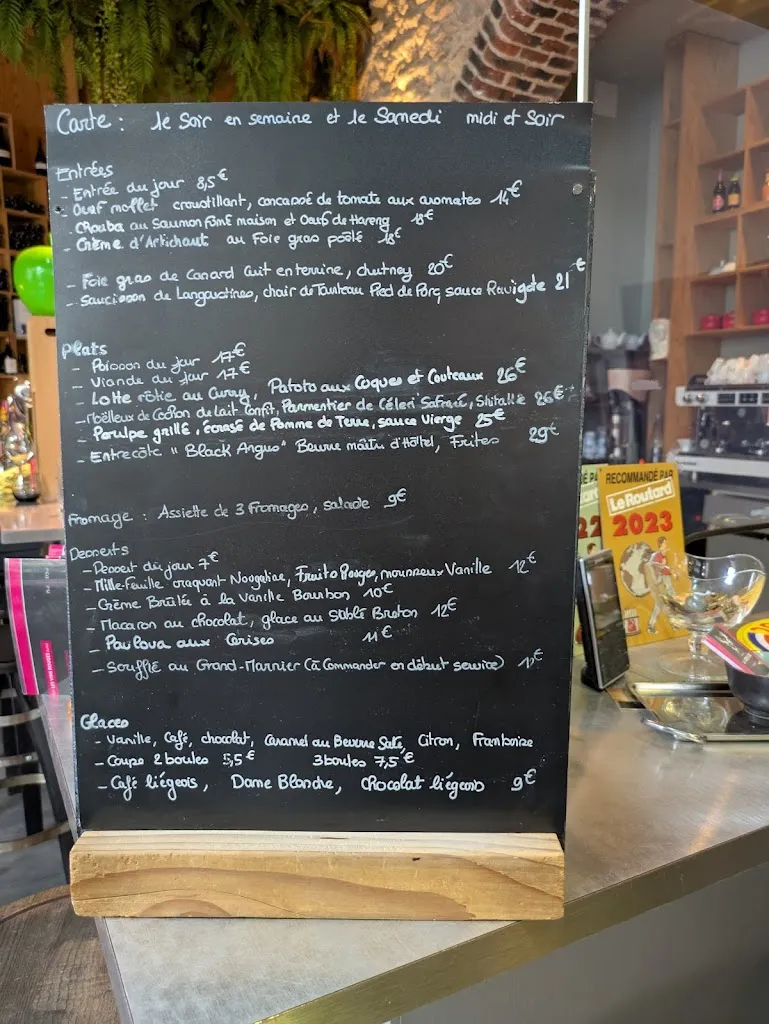 Carte : le Soir en semaine et le Samedi midi et Soir
Entrées
- Entrée du jour 8,5€
- Oeuf mollet croustillant, concassé de tomate aux aromates 14€
- Chouba au Saumon fumé maison et Oeuf de Hareng 18€
- Crème d'Artichaut au Foie gras poêlé 18€
- Foie gras de Canard Cuit en terrine, chutney 20€
- Saucisson de Langoustines, chair de Tourteau Pied de Porc, sauce Ravigote 21€
Plats
- Poisson du jour 17€
- Viande du jour 17€
- Lotte rôtie au Curry, Patato aux Coques et Couteaux 26€
- Moëlleux de Cochon de Lait Confit, Parmentier de Céleri Safrané, Shitaké 26€
- Poulpe grillé, écrasé de Pomme de Terre, sauce Vierge 25€
- Entrecôte "Black Angus" Beurre maître d'Hôtel, Frites 29€
Fromage : Assiette de 3 Fromages, salade 9€
Desserts
- Dessert du jour 7€
- Mille-Feuille craquant Nougatine, Fruits Rouges, mousseux Vanille 12€
- Crème Brûlée à la Vanille Bourbon 10€
- Macaron au chocolat, glace au Sablé Breton 12€
- Pavlova aux Cerises 11€
- Soufflé au Grand-Marnier (à Commander en début service) 12€
Glaces
- Vanille, Café, chocolat, Caramel au Beurre Salé, Citron, Framboise
- Coupe 2 boules 5,5€ 3 boules 7,5€
- Café liégeois, Dame Blanche, Chocolat liégeois 9€
RECOMMANDÉ PAR
Le Routard
2023